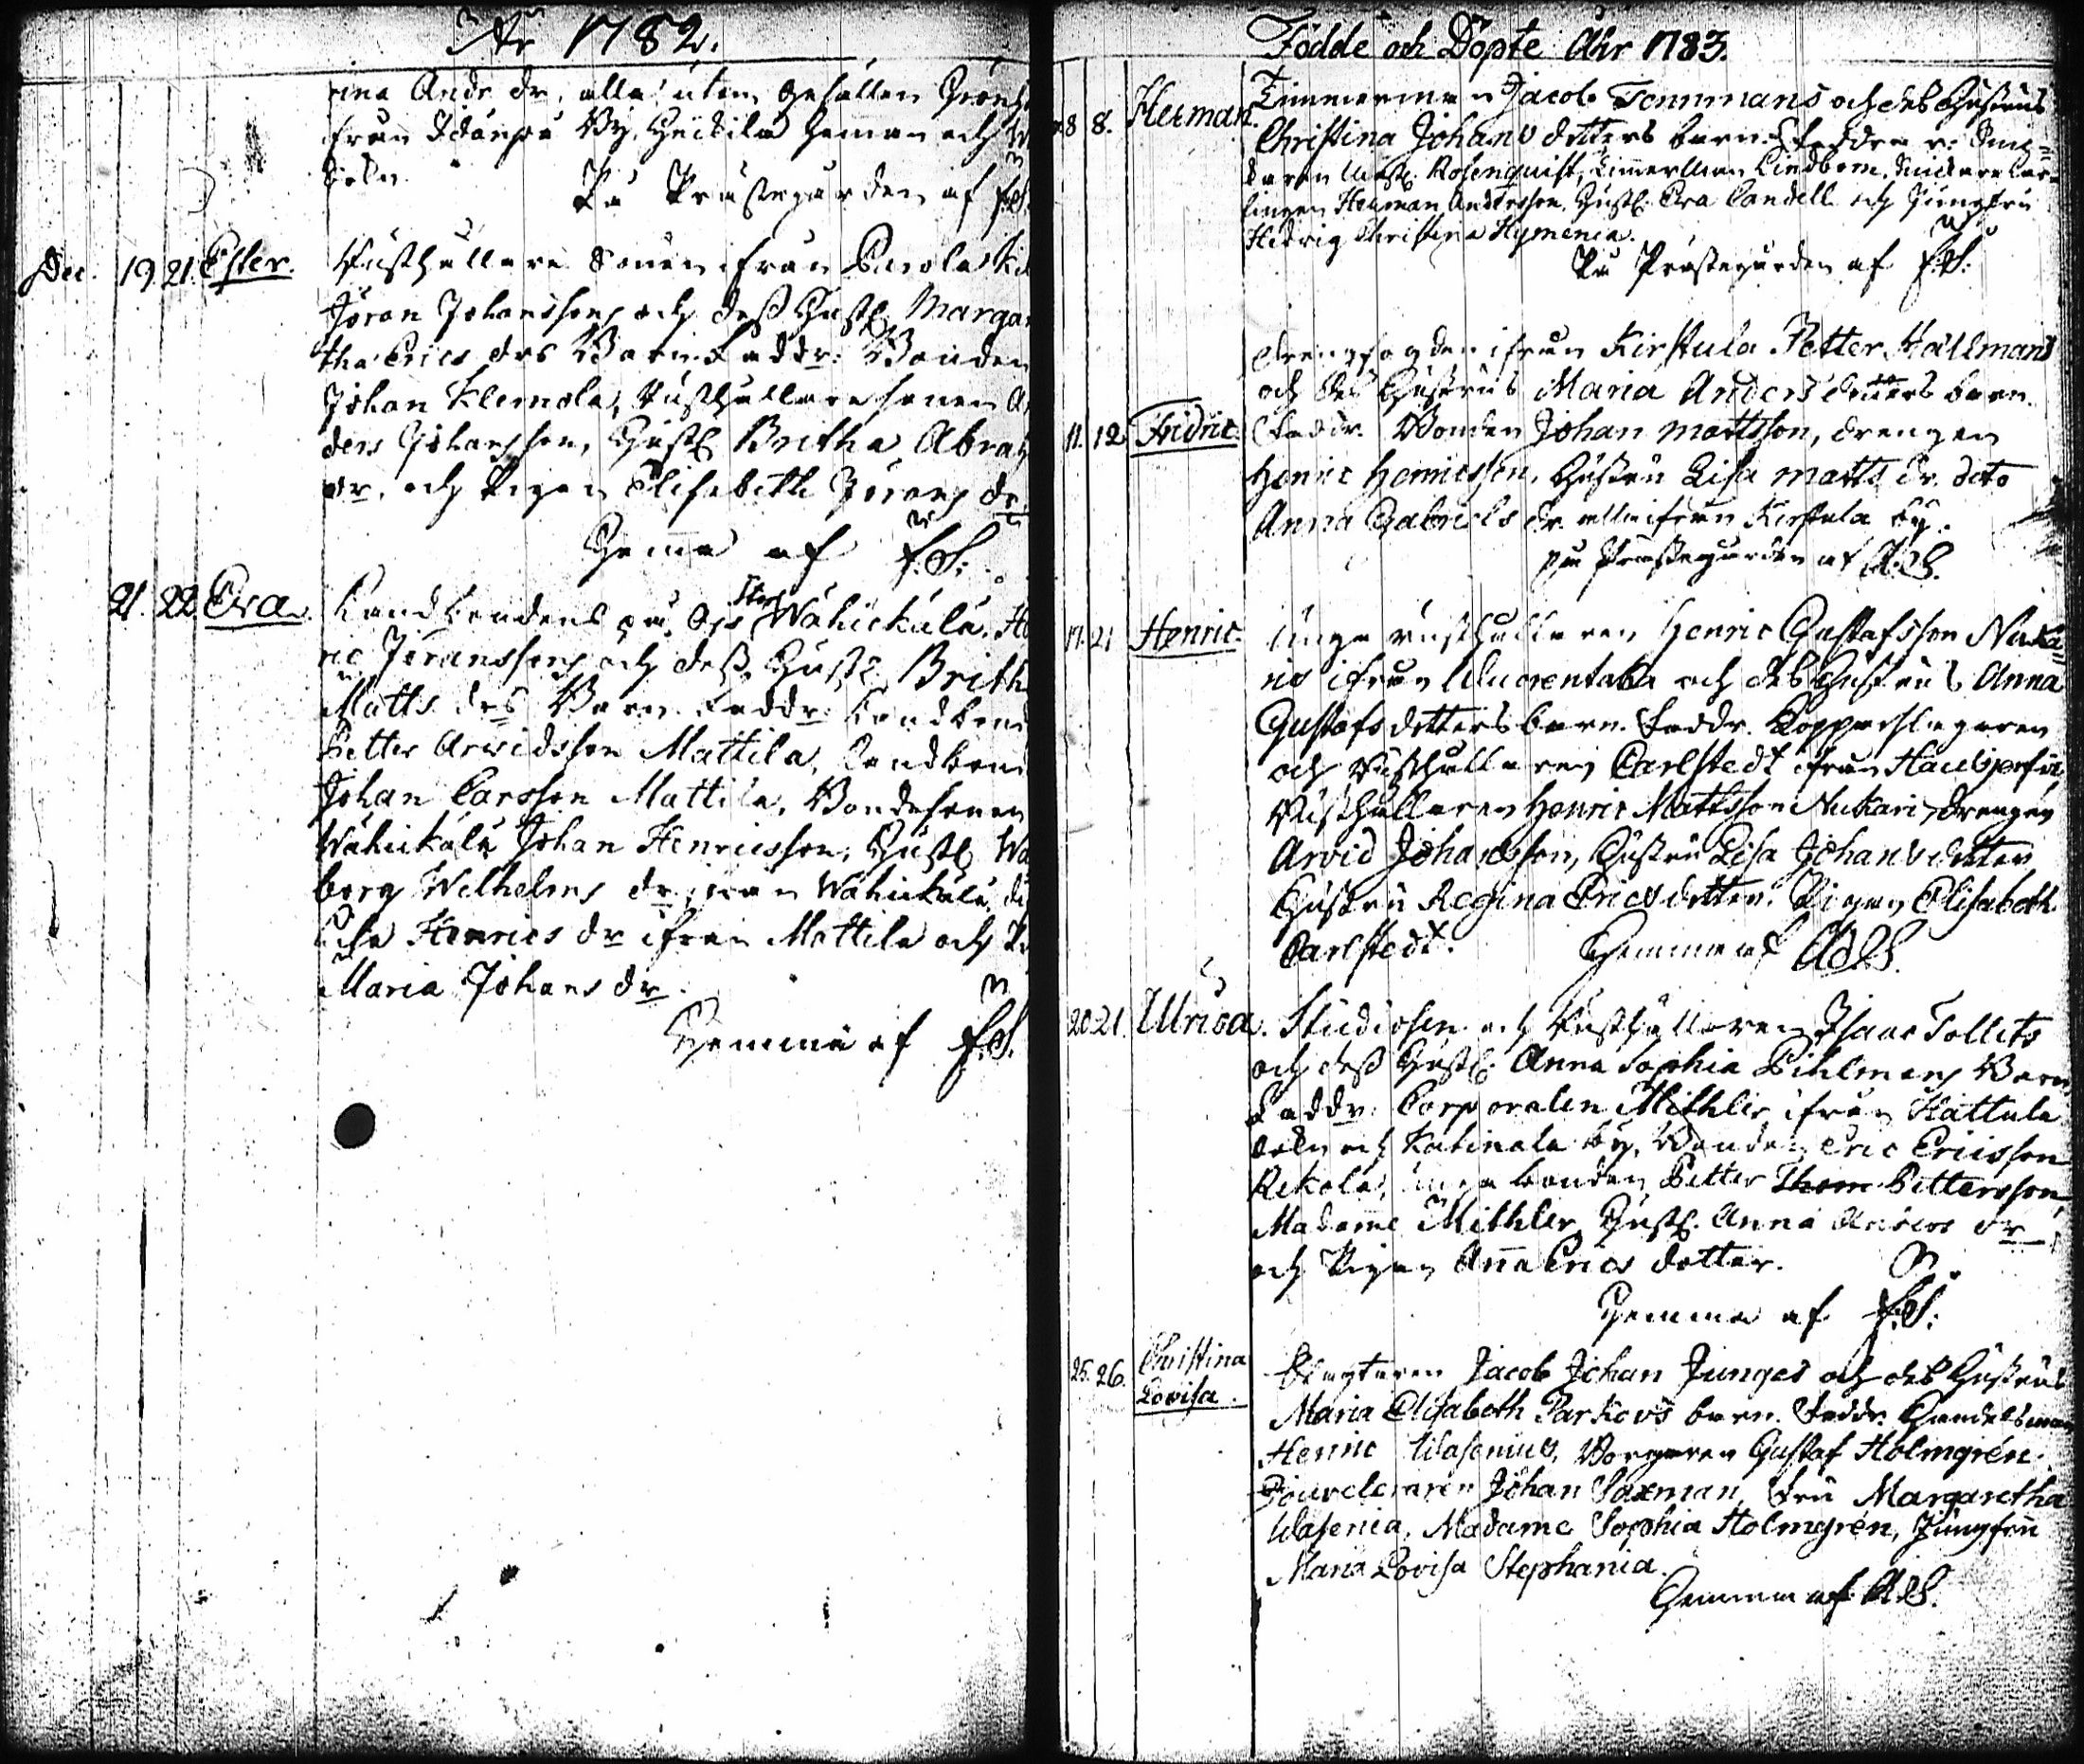 År 1782.
rina Andr. dr, alla utom Gesällen
från By, Heikilä Hemman och
På Prästegården af
Dec. 19. 21. Ester. Rusthållare Sonen ifrån Parola
Jöran Johanssons och dess Hustr. Marga
tha Erics drs Barn. Faddr: Bonden
Johan Klemola, Rusthållare sonen An
ders Johansson, Hustr. Britha Abrah
dr, och Pigan Elisabeth Jörans dr
Hemma af F.S.
21. 22. Eva. Landbondens på Wähickälä He
ric Jöranssons och dess Hustr. Brith
Matts drs Barn. Faddr: Landbon
Petter Arvidsson Mattila, Landbon
Johan Carsson Mattila, Bondesonen
Wähikälä Johan Henricsson, Hustr. Wa
borg Wilhelms dr, från Wähickälä
Henrics dr ifrån Mattila och
Maria Johans dr.
Hemma af F.S.
Födde och Döpte Åhr 1783.
8. 8. Herman. Timmerman Jacob Temmans och des Hustrus
Christina Johans dotters barn. Faddrar:
Rosenquist, Timmerman Lindbom,
lingen Herman Andersson, Hustr. Eva Candell och Jungfru
Hedvig Christina Hymenia.
På Prästegården af F.S.
Drengfogden ifrån Kirstula Petter Hällmans
och des Hustrus Maria Anders dotters barn.
11. 12. Fridric. Faddr. Bonden Johan Mattsson, drengen
Henric Henricsson, Hustru Lisa Matts dr. dito
Anna Gabriels dr. alla ifrån Kirstula by.
på Prästegården af A.S.
17. 21. Henric. Unge rusthållaren Henric Gustafsson Nuka=
ris ifrån Wuorentaka och des Hustrus Anna
Gustafs dotters barn. Faddr. Kopparslagaren
och Rusthållaren Carlstedt ifrån
Rusthållaren Henric Mattsson Nukari, drengen
Arvid Johansson, Hustru Lisa Johans dotter
Hustru Regina Erics dotter. Pigan Elisabeth
Carlstedt. Hemma af A.S.
20. 21. Ulrica. Studiosen och Rusthållaren Isaac Tollets
och dess Hustr. Anna Sophia Pihlmans Barn
Faddr: Corporalen Mithler ifrån Hattula
och Katinala by, Bonden Eric Ericsson
Rekola, unga bonden Petter Thom Pettersson,
Madame Mithler, Hustr. Anna Anders dr
och Pigan Anna Erics dotter.
Hemma af F.S.
25. 26. Christina Lovisa. Jacob Johan Junges och des Hustrus
Maria Elisabeth Parkovs barn. Faddr. Handelsman
Henric Wasenius, Borgaren Gustaf Holmgrén.
Jouveleraren Johan Saxman, Fru Margaretha
Wasenia, Madame Sophia Holmgrén, Jungfru
Maria Lovisa Stephania.
Hemma af A.S.